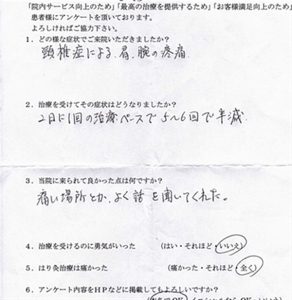 「院内サービス向上のため」「最高の治療を提供するため」「お客様満足向上のため」
患者様にアンケートを頂いております。
よろしければご協力下さい。
1．どの様な症状でご来院いただきましたか？
頸椎症による、肩、腕の疼痛
2．治療を受けてその症状はどうなりましたか？
2日に1回の治療ペースで5〜6回で半減
3．当院に来られて良かった点は何ですか？
痛い場所とか、よく話を聞いてくれた。
4．治療を受けるのに勇気がいった （はい・それほど・いいえ）
5．はり灸治療は痛かった （痛かった・それほど・全く）
6．アンケート内容をHPなどに掲載してもよろしいですか？